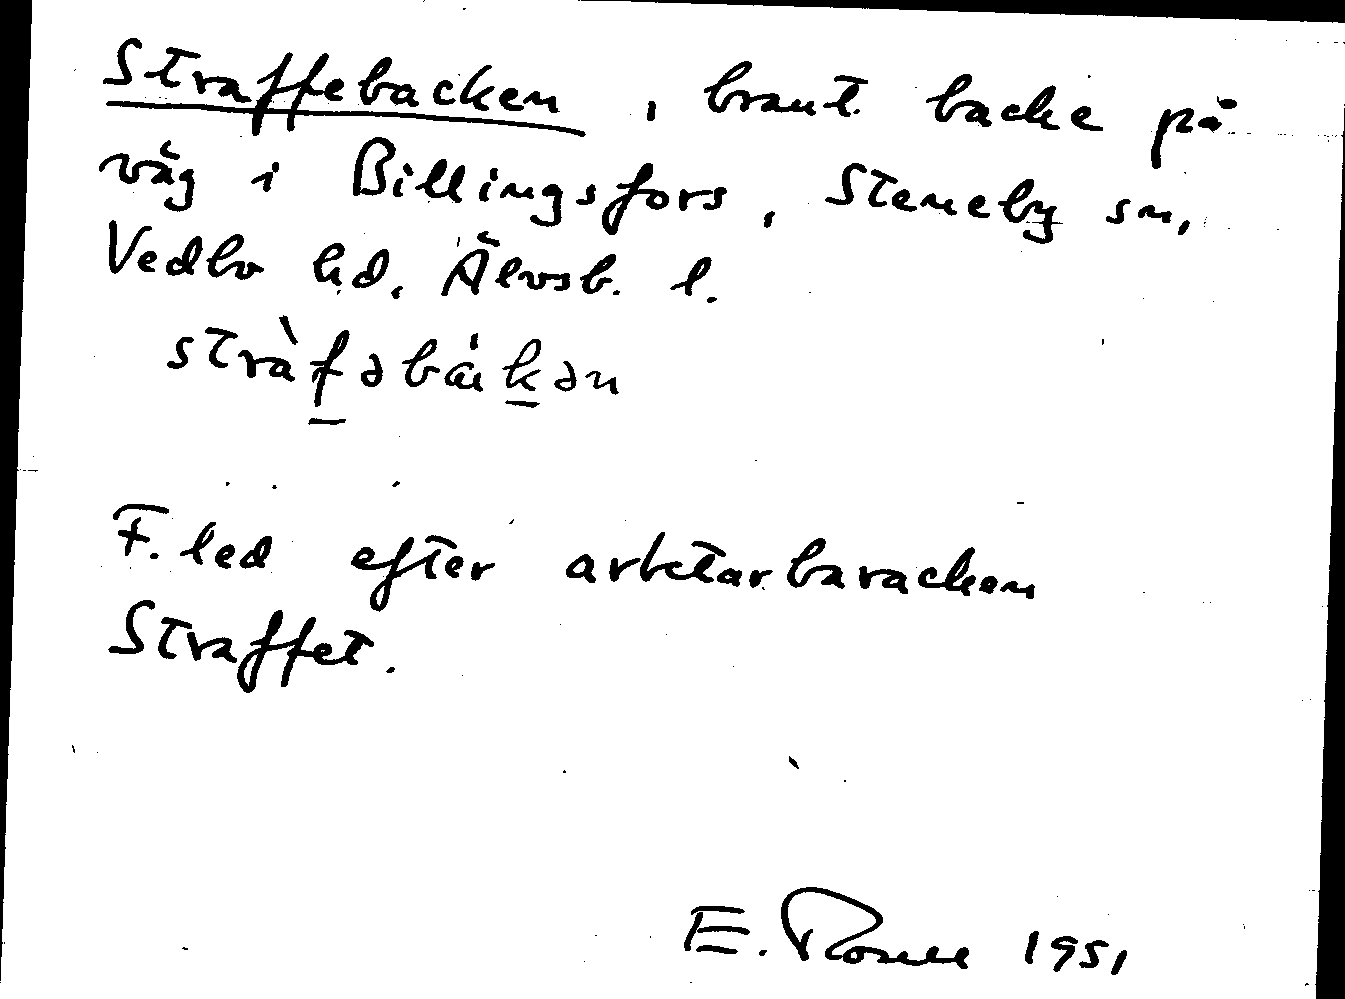 Straffebacken, brant backe på
väg i Billingsfors, Steneby sn,
Vedbo hd, Älvsb. l.
stràfəbákən
F. led efter arbetarbaracken
Straffet.
E. 1951